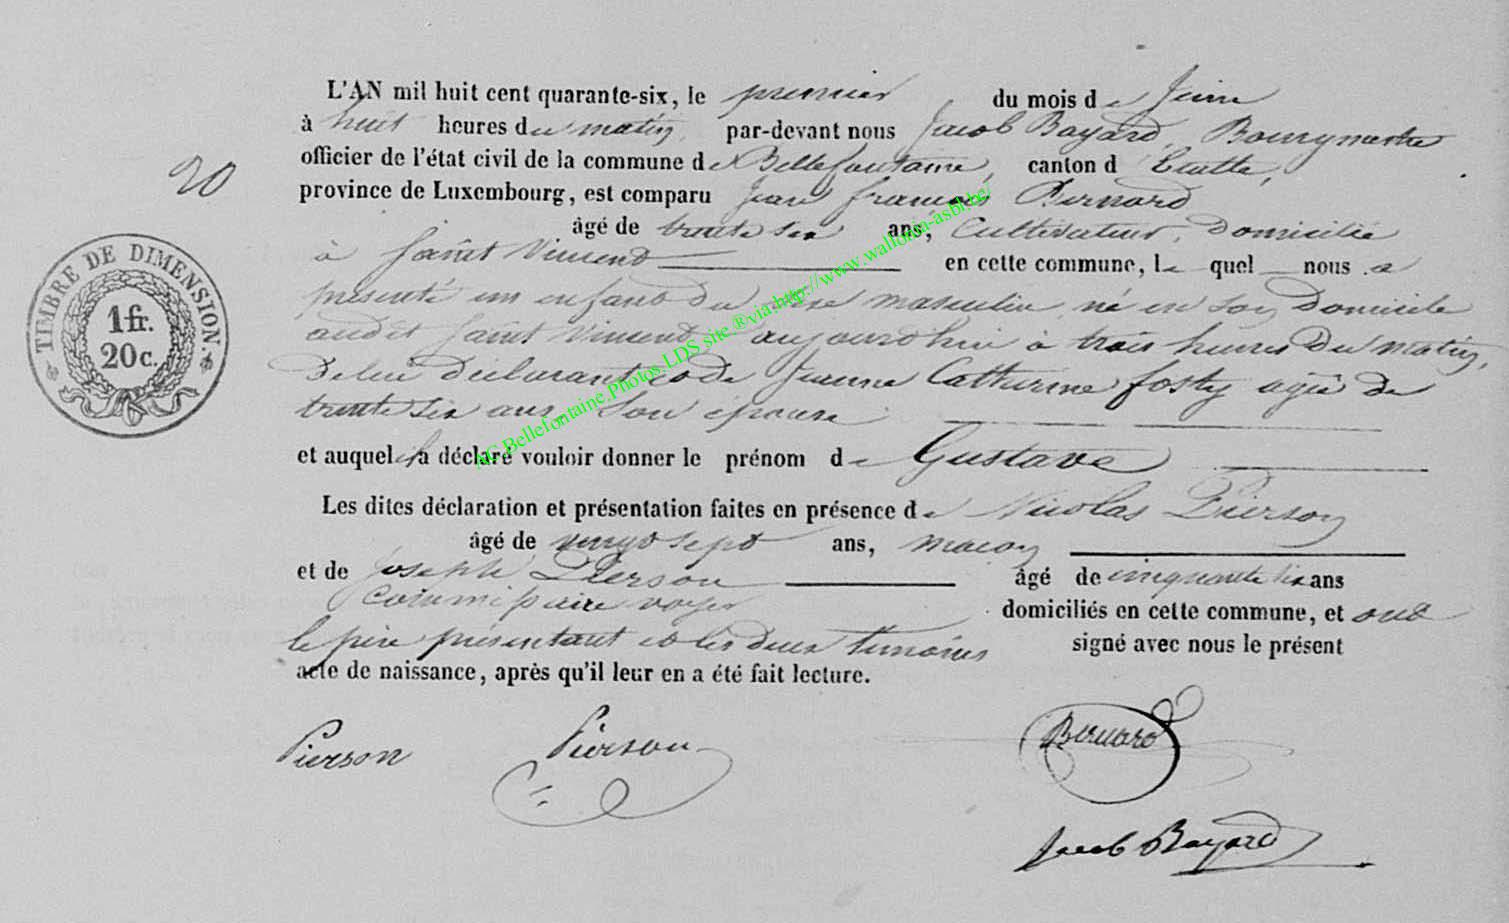 L'AN mil huit cent quarante-six, le premier du mois de Juin
à huit heures du matin, par-devant nous Jacob Bayard, Bourgmestre
officier de l'état civil de la commune de Bellefontaine, canton d'Etalle,
20
province de Luxembourg, est comparu Jean françois Bernard
âgé de trente six ans, Cultivateur, Domicilié
à Saint Vincent en cette commune, lequel nous a
présenté un enfant du sexe masculin, né en son Domicile
audit Saint Vincent, aujourd'hui à trois heures du matin,
De lui déclarant et de Jeanne Catherine fosty agée de
trente six ans, Son épouse
et auquel il a déclaré vouloir donner le prénom de Gustave
Les dites déclaration et présentation faites en présence de Nicolas Pierson
âgé de vingt sept ans, maçon
et de Joseph Pierson âgé de cinquante six ans
Commissaire voyer domiciliés en cette commune, et ont
le père présentant et les deux témoins signé avec nous le présent
acte de naissance, après qu'il leur en a été fait lecture.
Pierson Pierson Bernard
Jacob Bayard
TIMBRE DE DIMENSION
1 fr.
20 c.
AC.Bellefontaine.Photos.LDS site.®via.http://www.wallonia-asbl.be/